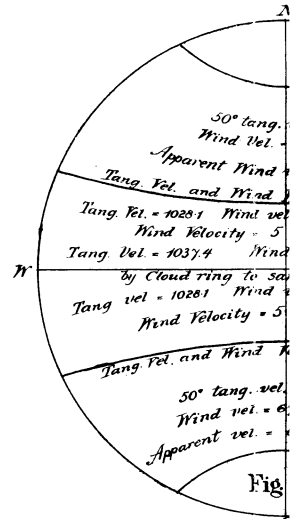 N
50° tang.
Wind Vel. -
Apparent Wind
Tang. Vel. and Wind
Tang. Vel. = 1028.1 Wind vel
Wind Velocity = 5
Tang. Vel. = 1037.4 Wind
W
by Cloud ring to sa
Tang vel = 1028.1 Wind
Wind Velocity = 5
Tang. Vel. and Wind V
50° tang. vel.
Wind vel. = 6
Apparent vel. =
Fig.